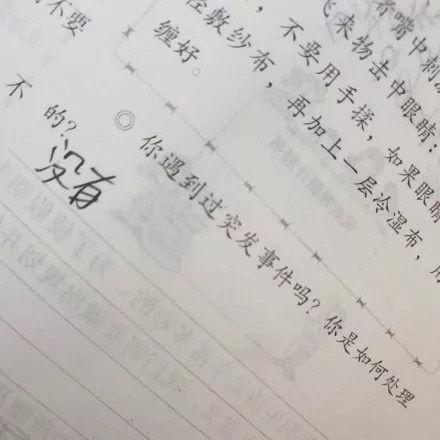 不要
缠好。
径敷纱布，
不要用手揉，如果眼睛
飞来物击中眼睛：
嘴中刺
再加上一层冷湿布，用
◎ 你遇到过突发事件吗？你是如何处理
不
的？
没有